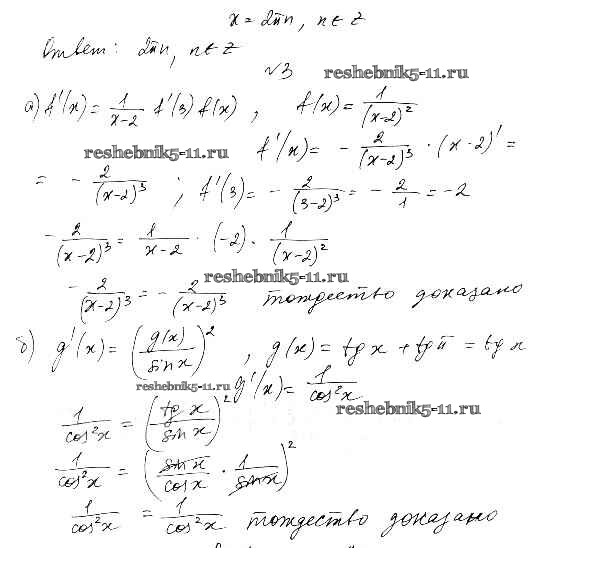 x = 2πn, n ∈ Z
Ответ: 2πn, n ∈ Z
√3 reshebnik5-11.ru
а) f'(x) = 1/(x-2) f'(3) f(x), f(x) = 1/(x-2)²
reshebnik5-11.ru f'(x) = - 2/(x-2)³ · (x-2)' =
= - 2/(x-2)³ ; f'(3) = - 2/(3-2)³ = - 2/1 = -2
- 2/(x-2)³ = 1/(x-2) · (-2) · 1/(x-2)²
reshebnik5-11.ru
- 2/(x-2)³ = - 2/(x-2)³ тождество доказано
б) g'(x) = (g(x)/sin x)², g(x) = tg x + tg π = tg x
reshebnik5-11.ru g'(x) = 1/cos²x
1/cos²x = (tg x/sin x)² reshebnik5-11.ru
1/cos²x = (sin x/cos x · 1/sin x)²
1/cos²x = 1/cos²x тождество доказано